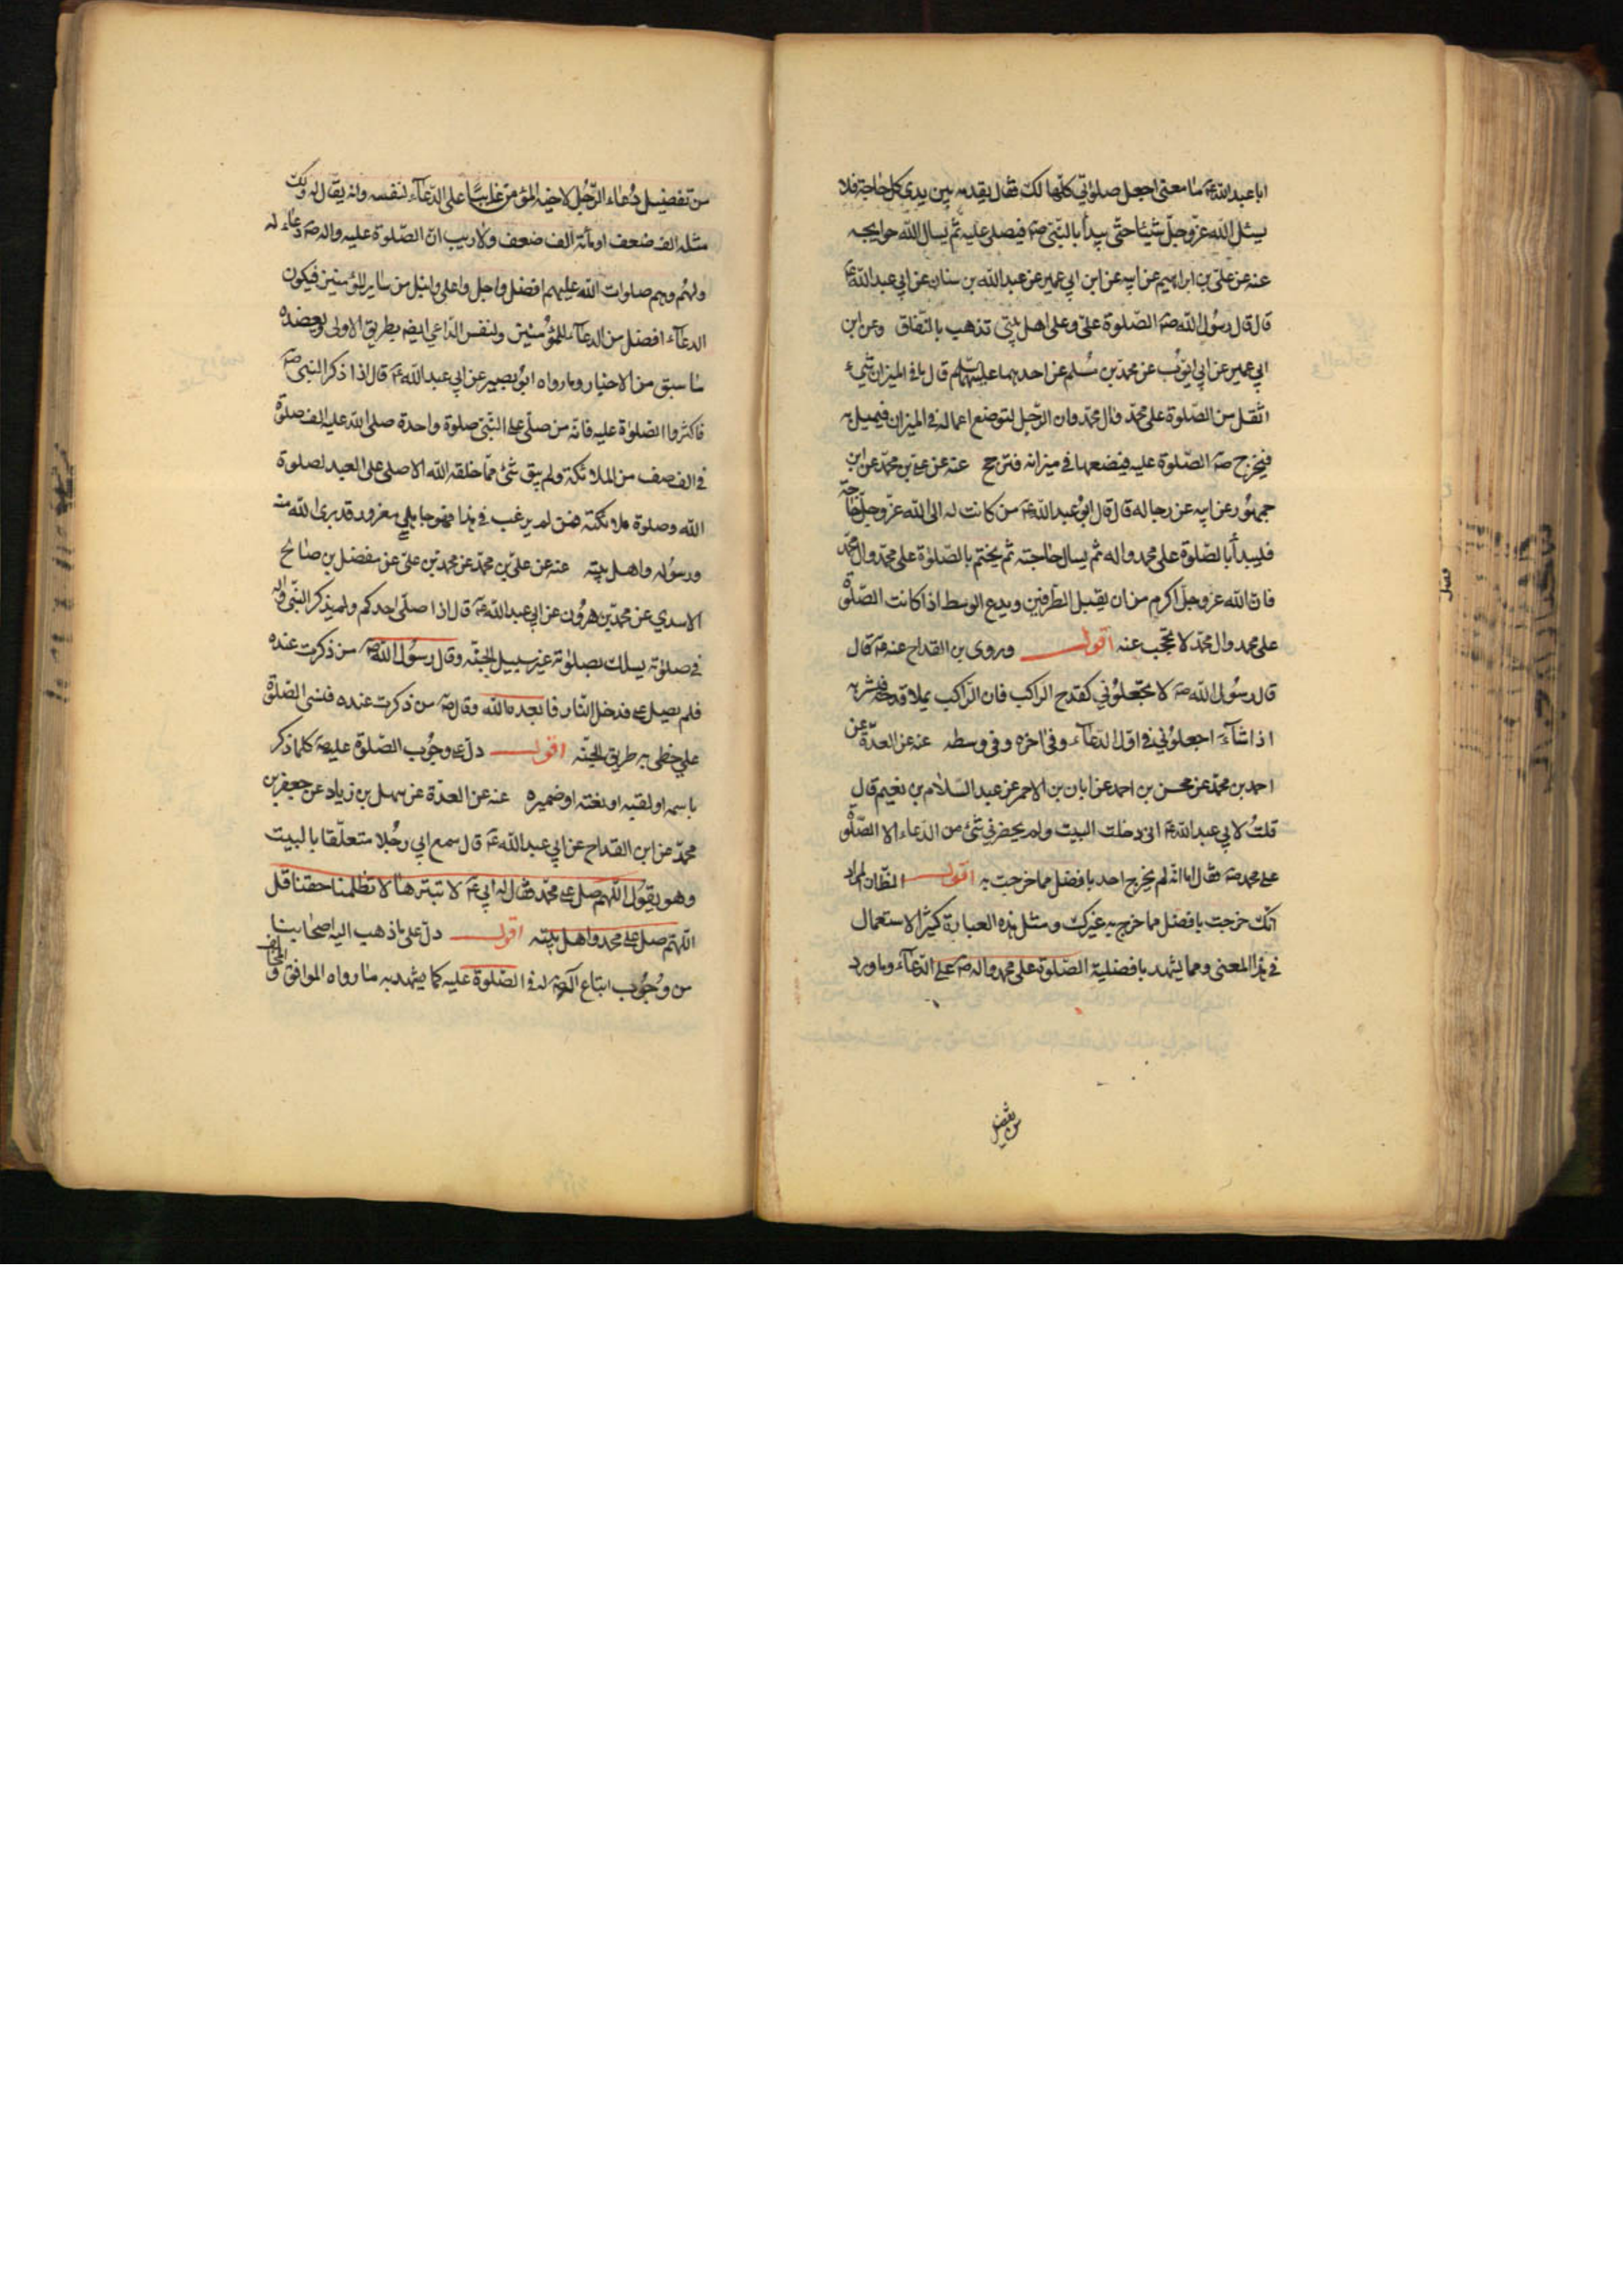 ابا عبد الله ع ما معنى اجعل صلوتي كلها لك فقال يقدمه بين يدي كل حاجة فلا
يسئل الله عز وجل شيئا حتى يبدأ بالنبي ص فيصلي عليه ثم يسال الله حوايجه
عنه عن علي بن ابراهيم عن ابيه عن ابن ابي عمير عن عبد الله بن سنان عن ابي عبد الله ع
قال قال رسول الله ص الصلوة علي وعلى اهل بيتي تذهب بالنفاق وعن ابن
ابي عمير عن ابي ايوب عن محمد بن مسلم عن احدهما عليهما السلم قال ما في الميزان شيء
اثقل من الصلوة على محمد وال محمد وان الرجل لتوضع اعماله في الميزان فيميل به
فيخرج ص الصلوة عليه فيضعها في ميزانه فترجح عنه عن علي بن محمد عن ابن
جمهور عن ابيه عن رجاله قال قال ابو عبد الله ع من كانت له الى الله عز وجل حاجة
فليبدأ بالصلوة على محمد واله ثم يسال حاجته ثم يختم بالصلوة على محمد وال محمد
فان الله عز وجل اكرم من ان يقبل الطرفين ويدع الوسط اذا كانت الصلوة
على محمد وال محمد لا تحجب عنه اقول وروى بن القداح عنه ع قال
قال رسول الله ص لا تجعلوني كقدح الراكب فان الراكب يملا قدحه فيشربه
اذا شآء اجعلوني في اول الدعآء وفي اخره وفي وسطه عنه عن العدة عن
احمد بن محمد عن محسن بن احمد عن ابان بن الاحمر عن عبد السلام بن نعيم قال
قلت لابي عبد الله ع اني دخلت البيت ولم يحضرني شئ من الدعاء الا الصلوة
على محمد ص فقال اما انه لم يخرج احد بافضل مما خرجت به اقول الظان المراد
انك خرجت بافضل مما خرج به غيرك ومثل هذه العبارة كثير الاستعمال
في هذا المعنى ومما يشهد بافضلية الصلوة على محمد واله ص على الدعآء وما ورد
من تفضيل
من تفضيل دعاء الرجل لاخيه المؤمن غايبا على الدعآء لنفسه وانه يقال له ولك
مثله الف ضعف او مائة الف ضعف ولا ريب ان الصلوة عليه واله ص دعاء له
ولهم وهم صلوات الله عليهم افضل واجل واعلى وانبل من ساير المؤمنين فيكون
الدعآء افضل من الدعآء للمؤمنين ولنفس الداعي ايضه بطريق الاولى ويعضده
ما سبق من الاخبار وما رواه ابو بصير عن ابي عبد الله ع قال اذا ذكر النبي ص
فاكثروا الصلوة عليه فانه من صلى على النبي صلوة واحدة صلى الله عليه الف صلوة
في الف صف من الملائكة ولم يبق شئ مما خلقه الله الا صلى على العبد لصلوة
الله وصلوة ملائكته فمن لم يرغب في هذا فهو جاهل مغرور قد برى الله منه
ورسوله واهل بيته عنه عن علي بن محمد عن محمد بن علي عن مفضل بن صالح
الاسدي عن محمد بن هرون عن ابي عبد الله ع قال اذا صلى احدكم ولم يذكر النبي واله
في صلوته يسلك بصلوته غير سبيل الجنة وقال رسول الله ص من ذكرت عنده
فلم يصل علي فدخل النار فابعده الله وقال ص من ذكرت عنده فنسى الصلوة
علي خطى به طريق الجنة اقول دل على وجوب الصلوة عليه ص كلما ذكر
باسمه او لقبه او نعته او ضميره عنه عن العدة عن سهل بن زياد عن جعفر بن
محمد عن ابن القداح عن ابي عبد الله ع قال سمع ابي رجلا متعلقا بالبيت
وهو يقول اللهم صل على محمد فقال له ابي ع لا تبترها لا تظلمنا حقنا قل
اللهم صل على محمد واهل بيته اقول دل على ما ذهب اليه اصحابنا
من وجوب اتباع آله ص له في الصلوة عليه كما يشهد به ما رواه الموافق و المخالف